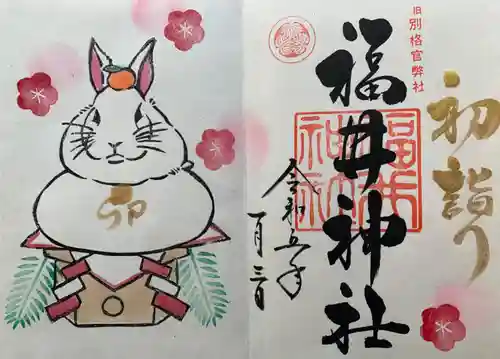 初詣り
旧別格官弊社
福井神社
令和五年
一月三日
卯
福井神社